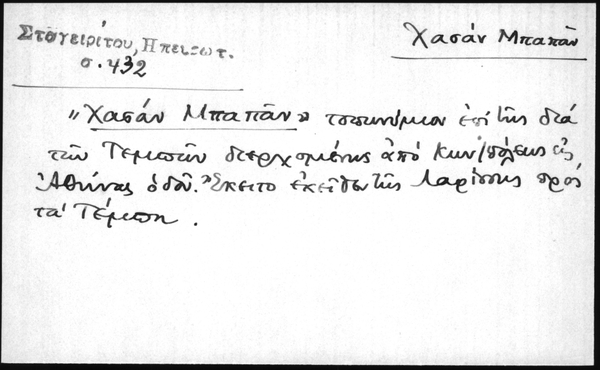 Σταγειρίτου, Ηπειρωτ.
σ. 432
Χασάν Μπαπάν
"Χασάν Μπαπάν" τοπωνύμιον ἐπί τῆς διά
τῶν Τεμπῶν διερχομένης ἀπό Κων/πόλεως εἰς
Ἀθήνας ὁδοῦ. Ἔκειτο ἐκεῖθεν τῆς Λαρίσσης πρός
τά Τέμπη.